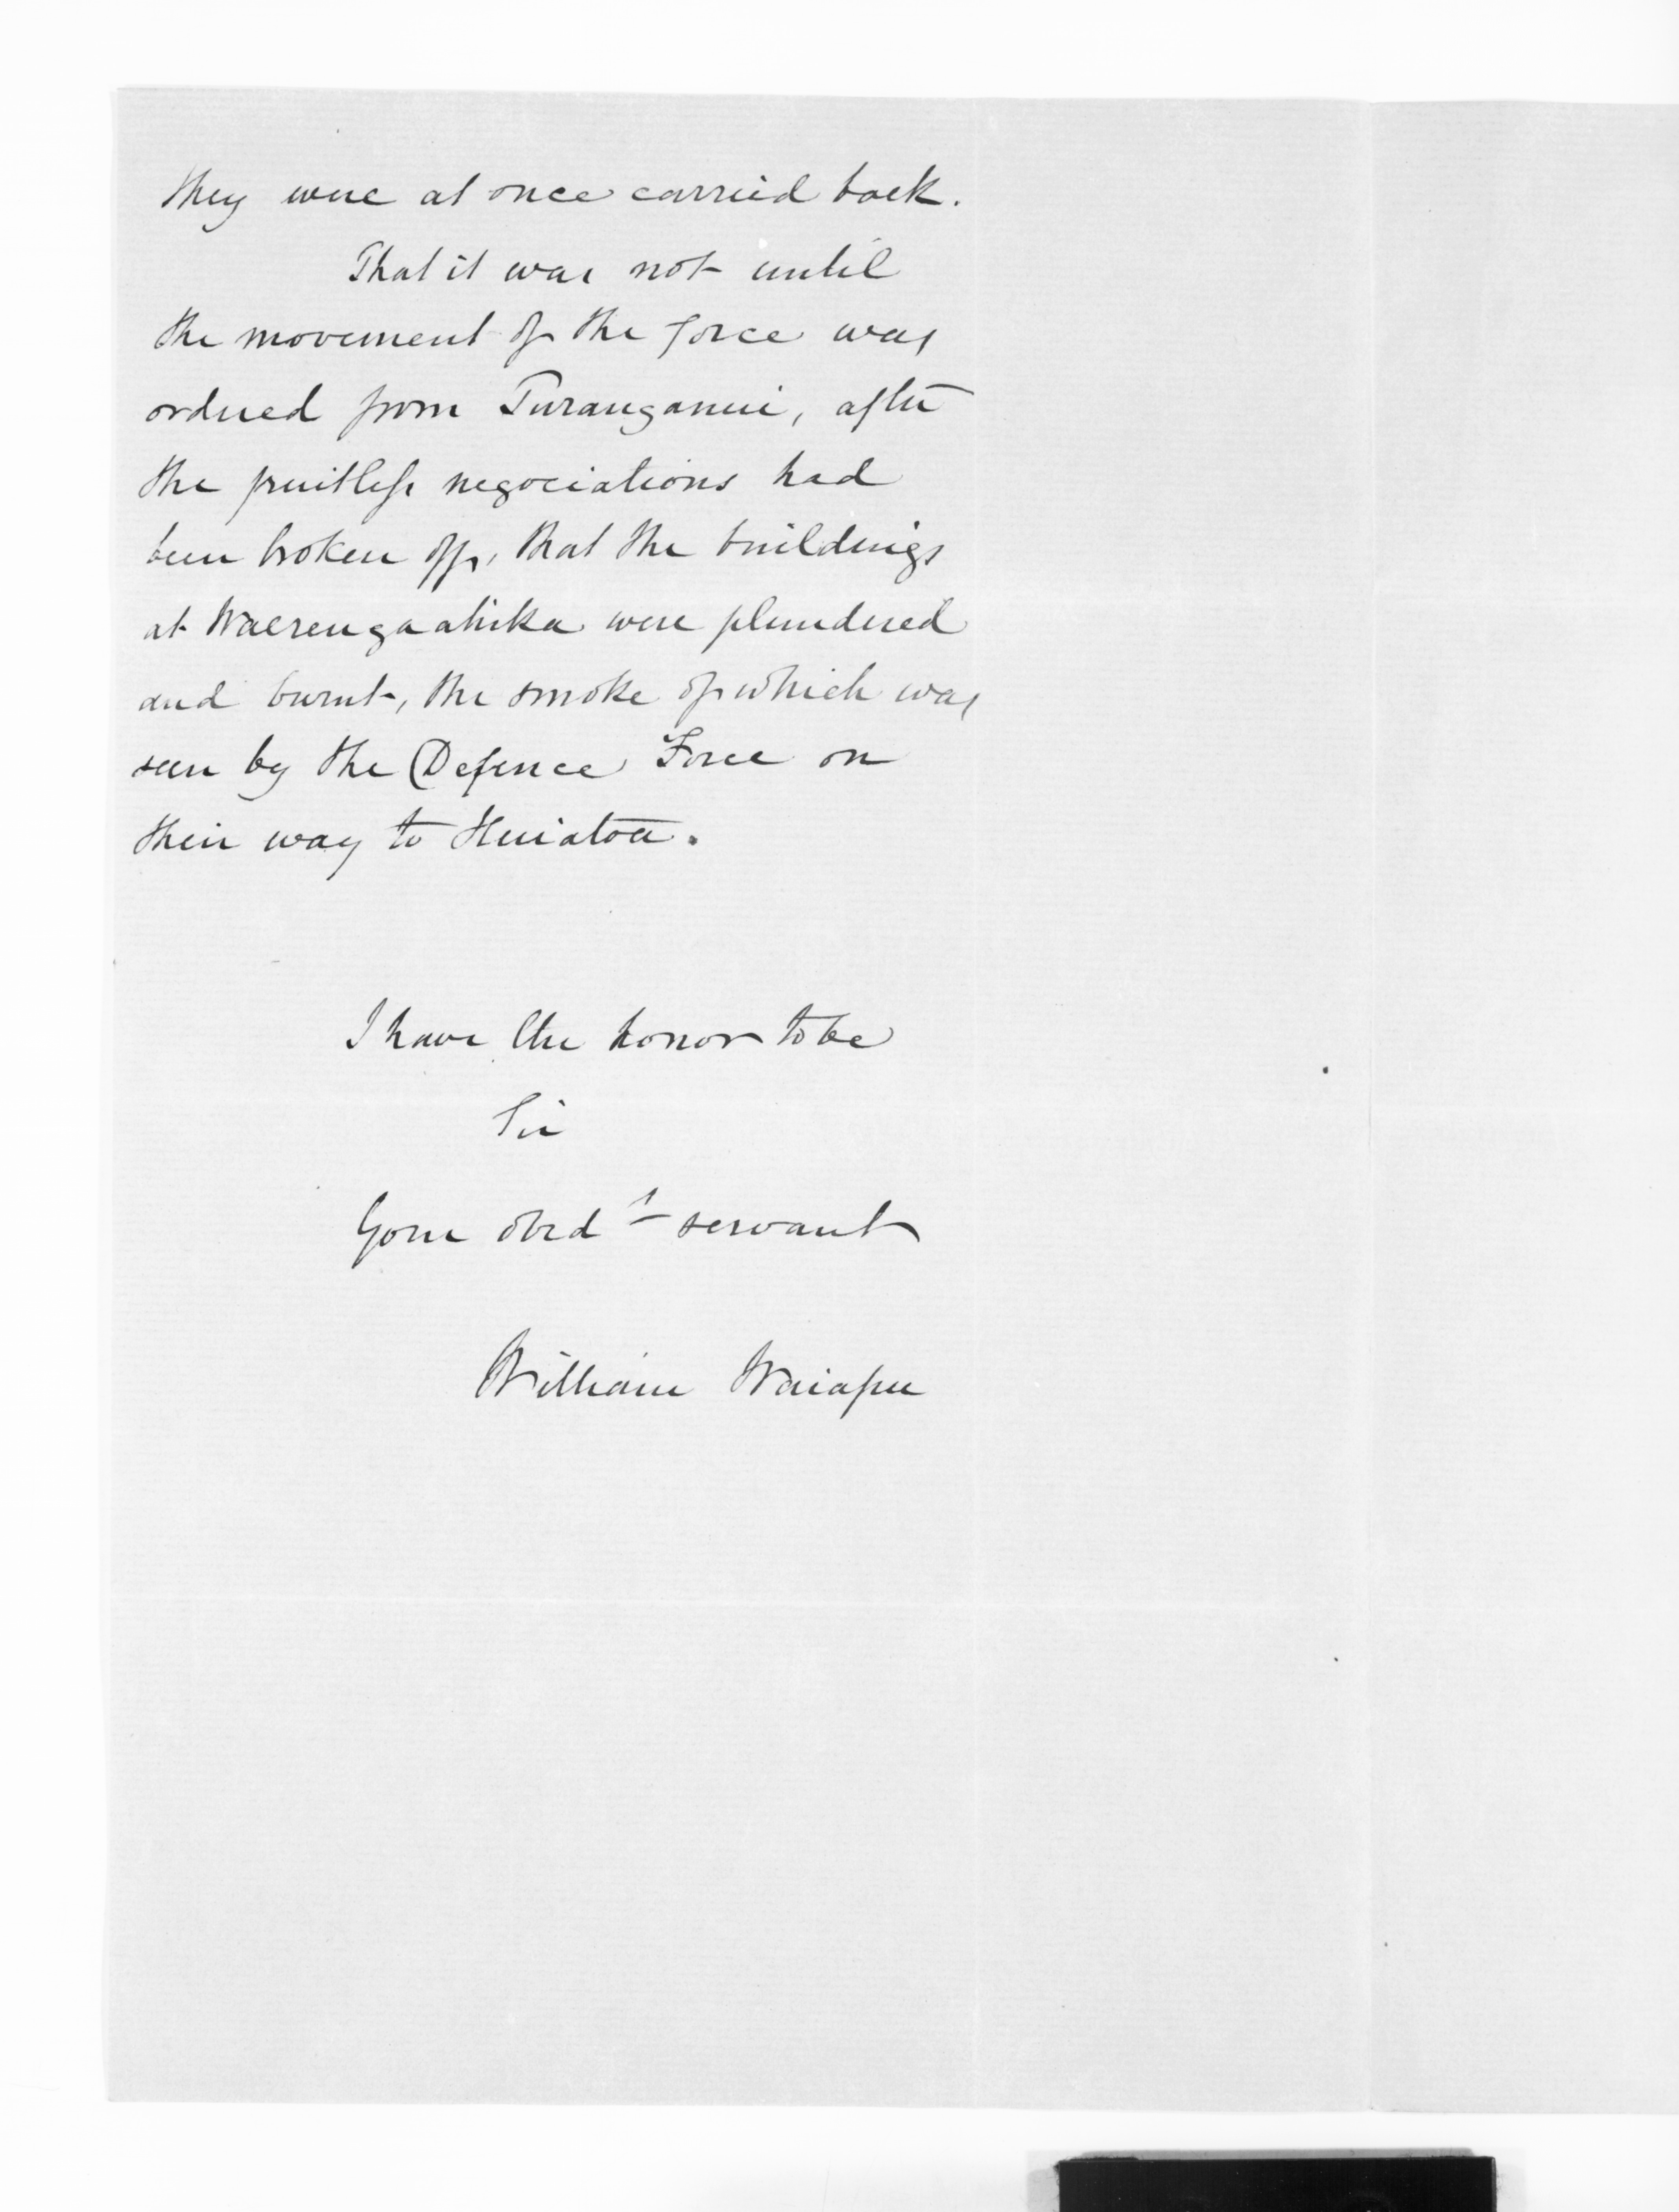 they were at once carried back.
That it was not until
the movement of the force was
ordered from Turanganui, after
the fruitless negociations had
been broken off, that the buildings
at Waerengaahika were plundered
and burnt, the smoke of which was
seen by the Defence Force on
their way to Huiatoa.
I have the honor to be
Sir
Your obedt servant
William Waiapu